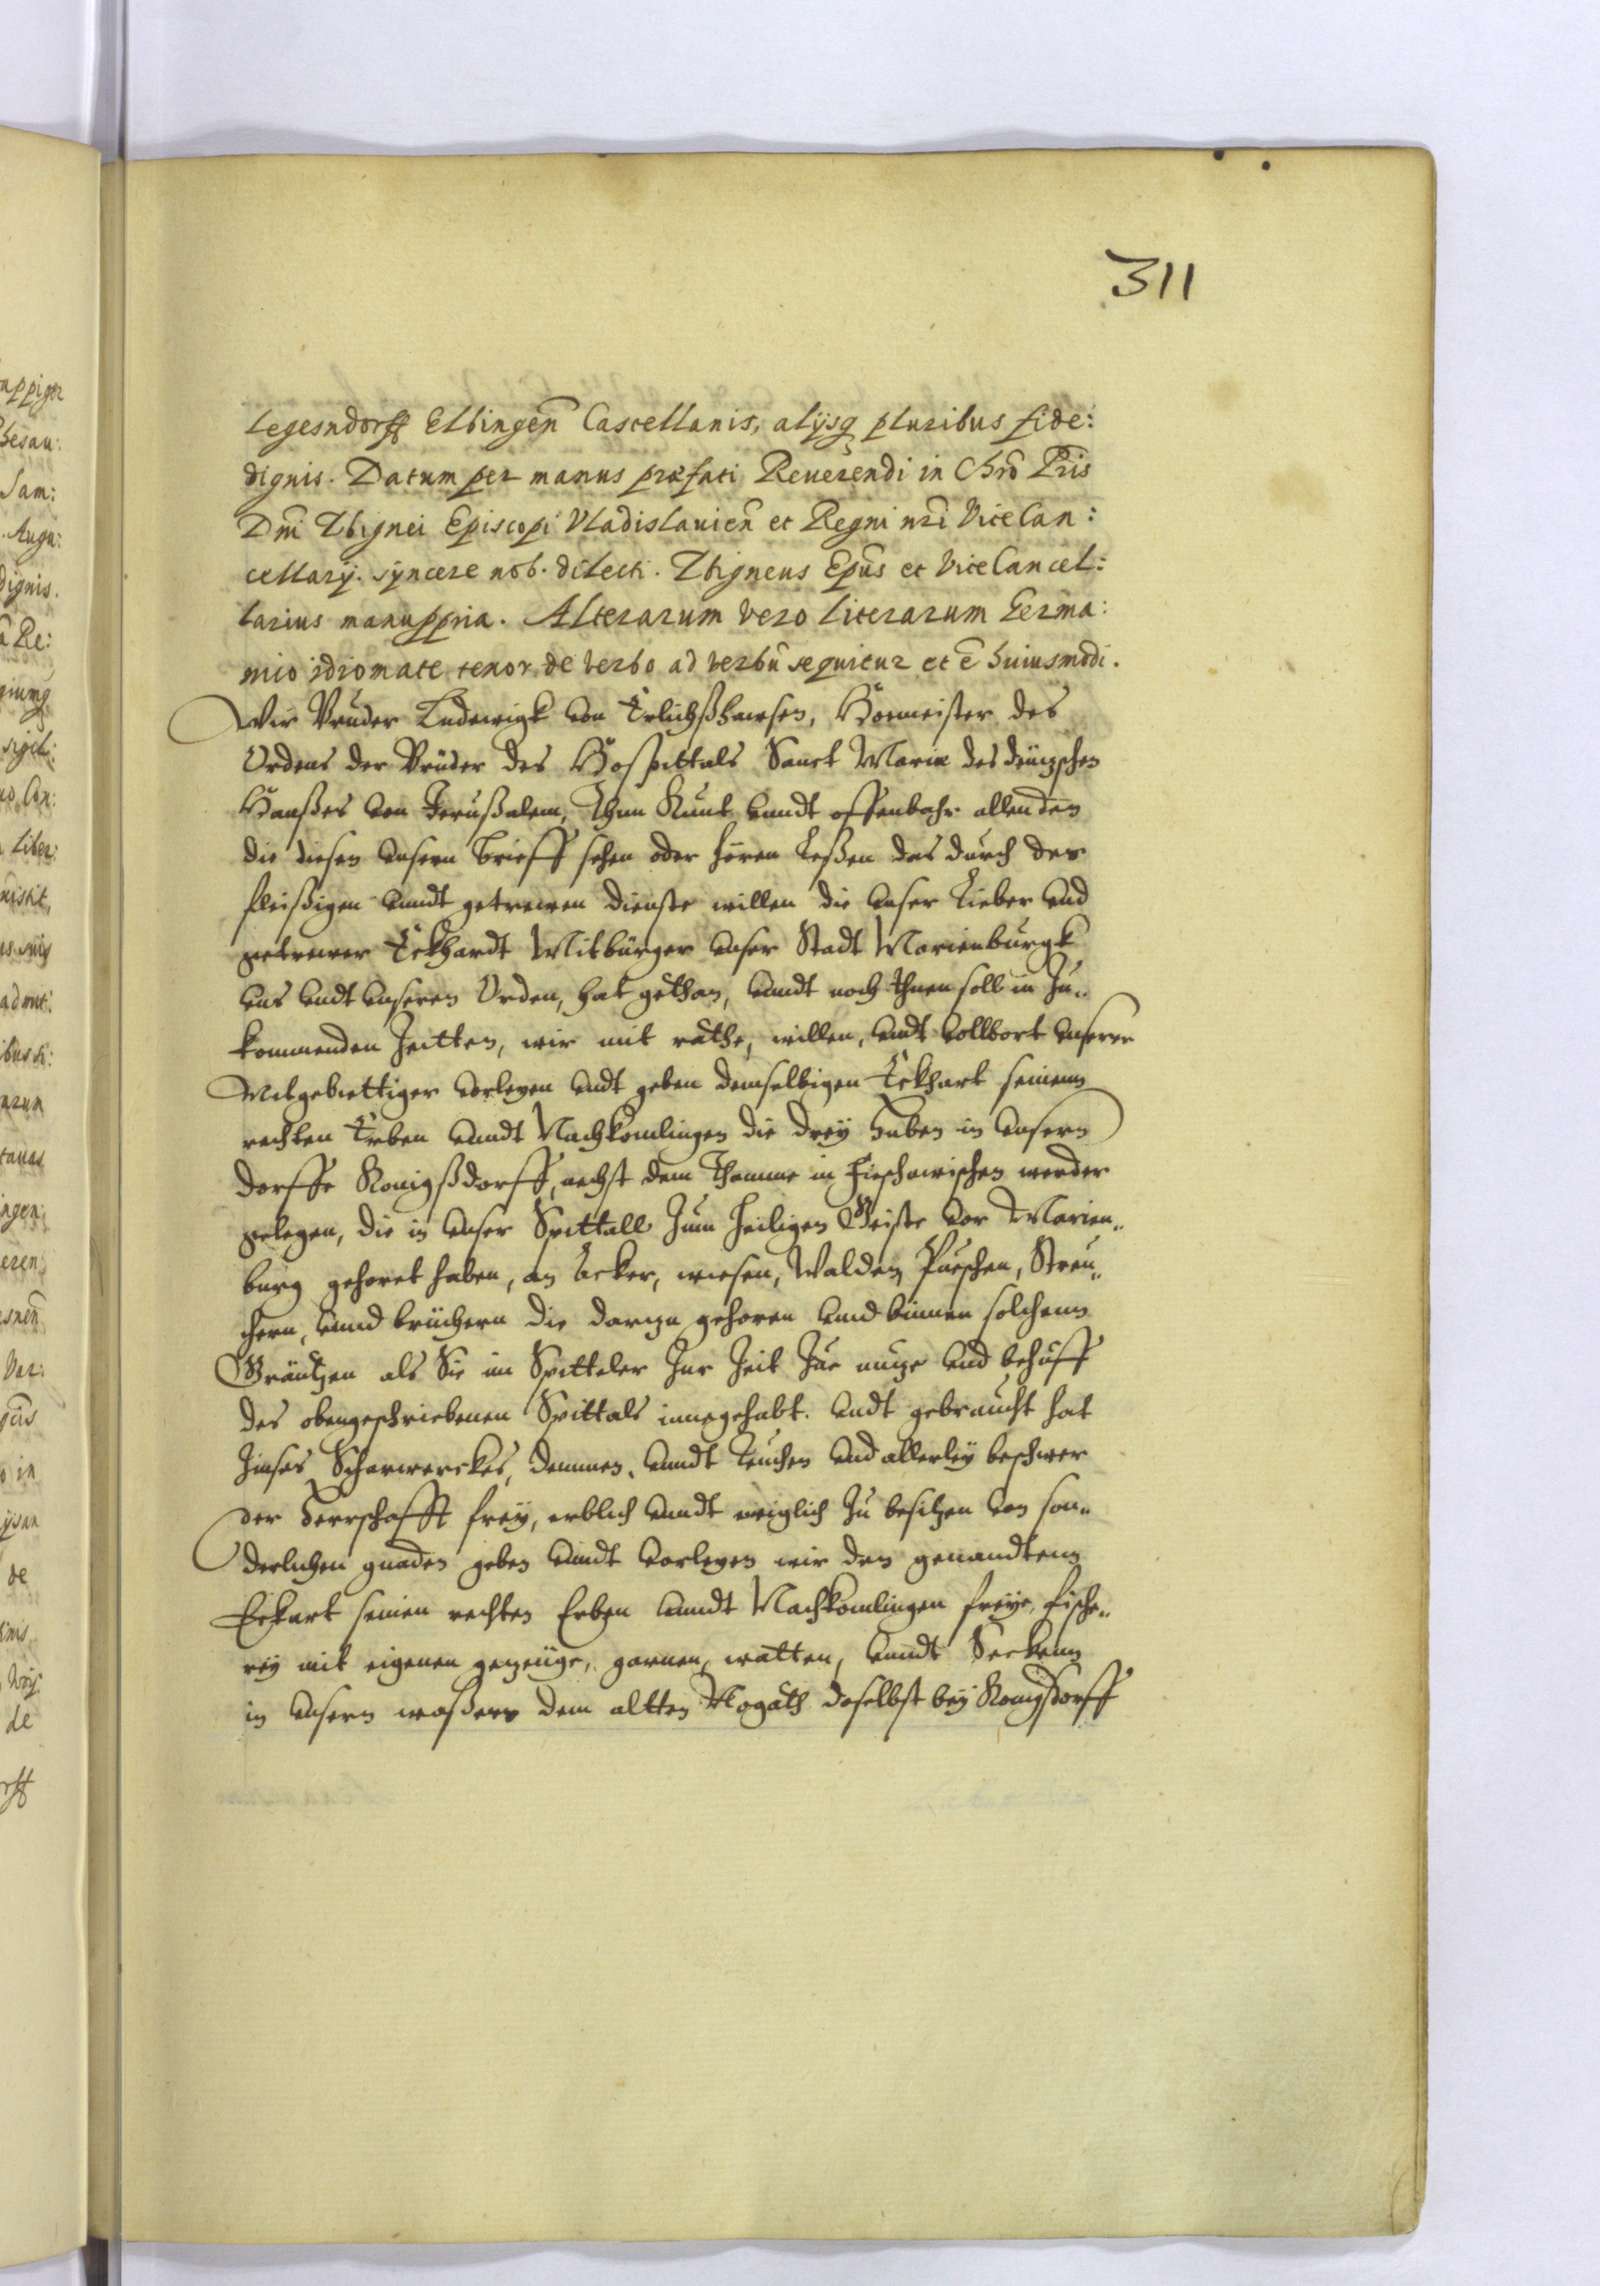 311
Legesndorff Elbingen̄ Castellanis, alijsq pluribus fide:
dignis. Datum per manus præfati Reuerendi in Chrō Pris
Dn̄i Sbignei Episcopi Vladislauien̄ et Regni nr̄i ViceCan:
cellarij. syncere nob. dilecti. Sbigneus Ep̄us et ViceCancel:
larius manuppria. Alterarum vero literarum Germa:
nico idiomate tenor de verbo ad verbū sequitur et ē huiusmodi.
Wir Bruder Ludewigk von Erlichßhausen, Homeister des
Ordens der Brüder des Hospittals Sanct Mariæ des deutzschen
Haußes von Jerußalem, Thun Kunt vundt offenbahr allen den
die diesen vnsern Brieff sehen oder hören leßen das durch der
fleißigen vundt getrewen dienste willen die vnser Lieber vnd
getrewer Eckhardt Mitbürger vnser Stadt Marienburgk
vns vndt vnseren Orden, hat gethan, vundt noch thuen soll in Zu„
kommenden Zeitten, wir mit rathe, willen, vndt vollbort vnserer
Mitgebiettiger vorleyen vndt geben demselbigen Eckhart seinenn
rechten Erben vundt Nachkomlingen die drey huben in vnserm
dorffe Konigßdorff, nechst dem Thamme in Fischawischen werder
gelegen, die in vnser Spittall Zum heiligen Geiste vor Marien„
burg gehoret haben, an Acker, wiesen, Walden, Puschen, Streu„
chern, vnnd brüchern die darzu gehoren vnnd binnen solchenn
Gräntzen als Sie im Spitteler Zur Zeit Zue nutze vnd behuff
des obengeschriebenen Spittals innegehabt. vndt gebraucht hat
Zinses Scharwerckes, demmen, vundt vnd allerley beschwer
der herrschafft frey, erblich vundt ewiglich Zu besitzen von son„
derlichen gnaden geben vundt vorleyen wir dem genandtenn
Eckart seinen rechten Erben vundt Nachkomlingen freye fische„
rey mit eigenen gezeüge, garnen, watten, vundt Seckenn
in vnserm waßern dem altten Nogath doselbst bey Konigsdorff